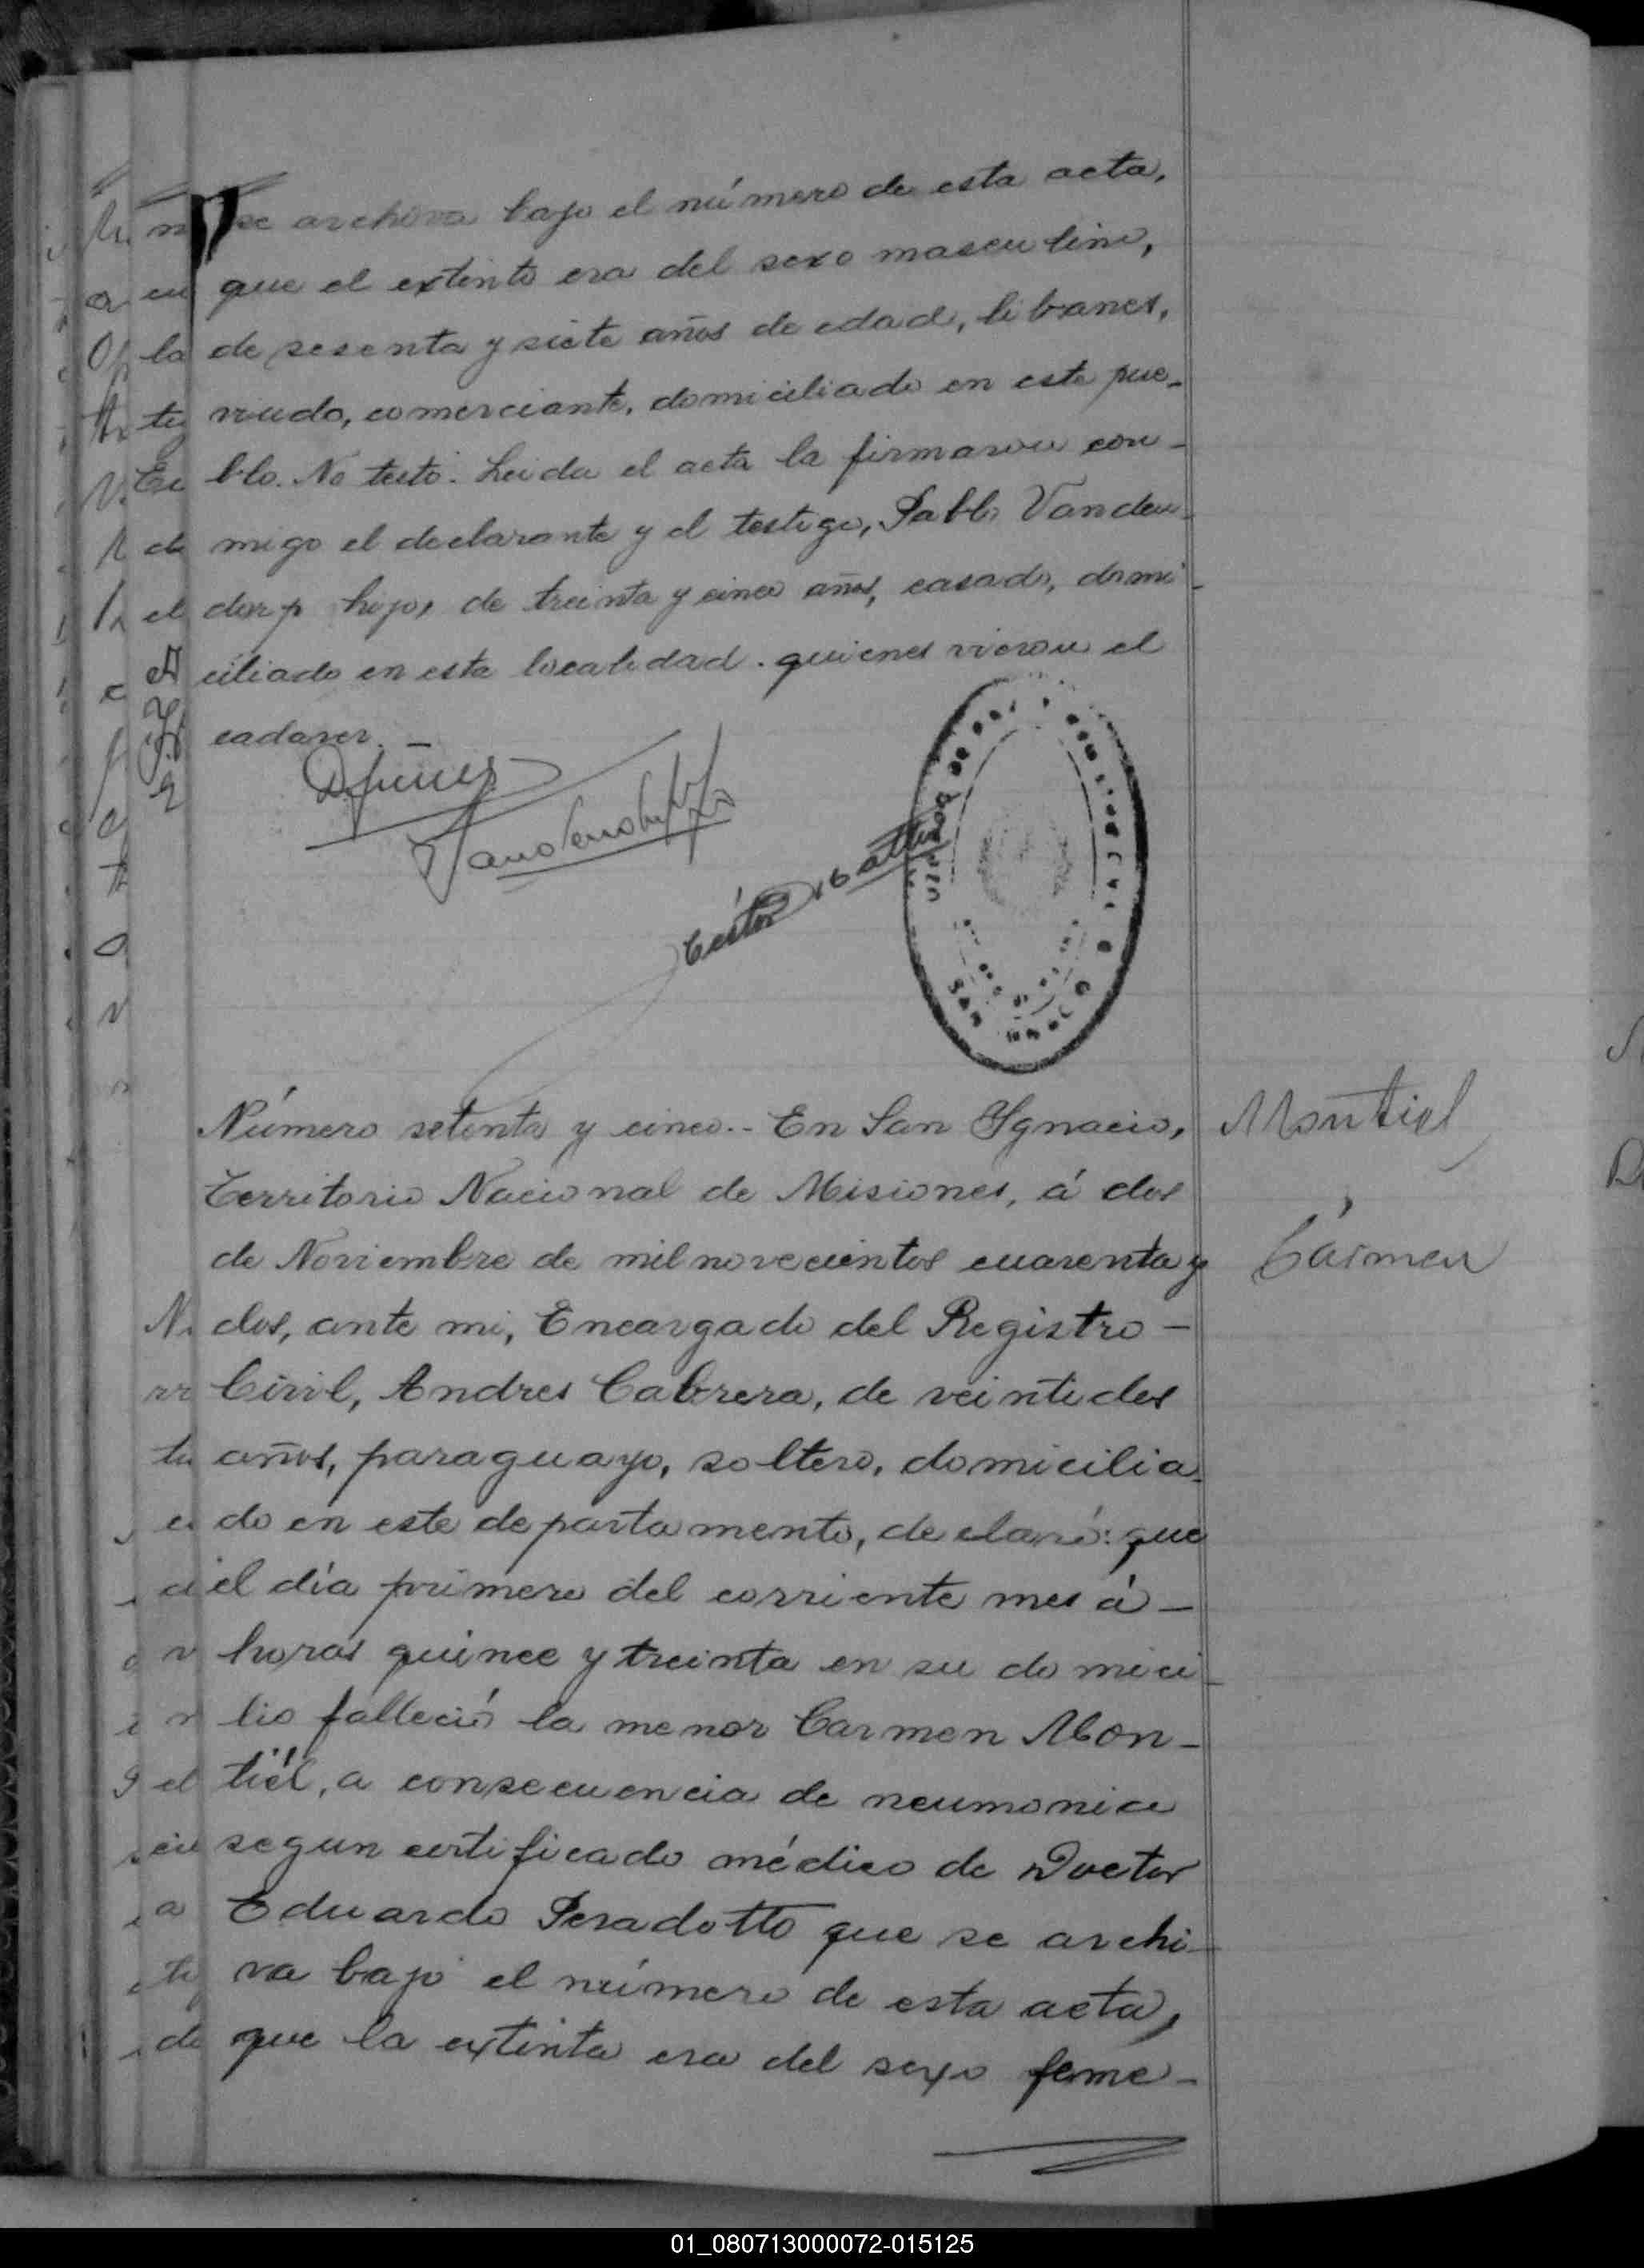 se archiva bajo el número de esta acta,
que el extinto era del sexo masculino,
de sesenta y siete años de edad, libanes,
viudo, comerciante, domiciliado en este pue-
blo. No testó. Leida el acta la firmaron con-
migo el declarante y el testigo, Pablo Vanden-
dorp hijo, de treinta y cinco años, casado, domi-
ciliado en esta localidad. quienes vieron el
cadaver. -
Número setenta y cinco.- En San Ygnacio,
Territorio Nacional de Misiones, á dos
de Noviembre de mil novecientos cuarenta y
dos, ante mi, Encargado del Registro -
Civil, Andres Cabrera, de veintidos
años, paraguayo, soltero, domicilia-
do en este departamento, declaró: que
el día primero del corriente mes á -
horas quince y treinta en su domici-
lio falleció la menor Carmen Mon-
tiél, a consecuencia de neumonia
segun certificado médico de Doctor
Eduardo Peradotto que se archi-
va bajo el número de esta acta,
que la extinta era del sexo feme-
Montiel
Cármen
01_080713000072-015125